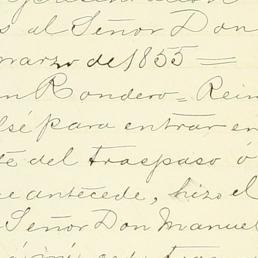 s al Señor Don
marzo de 1855 =
n Rondero = Rein
lsé para entrar en
té del traspaso ó
e antécede, hizo el
Señor Don Manuel